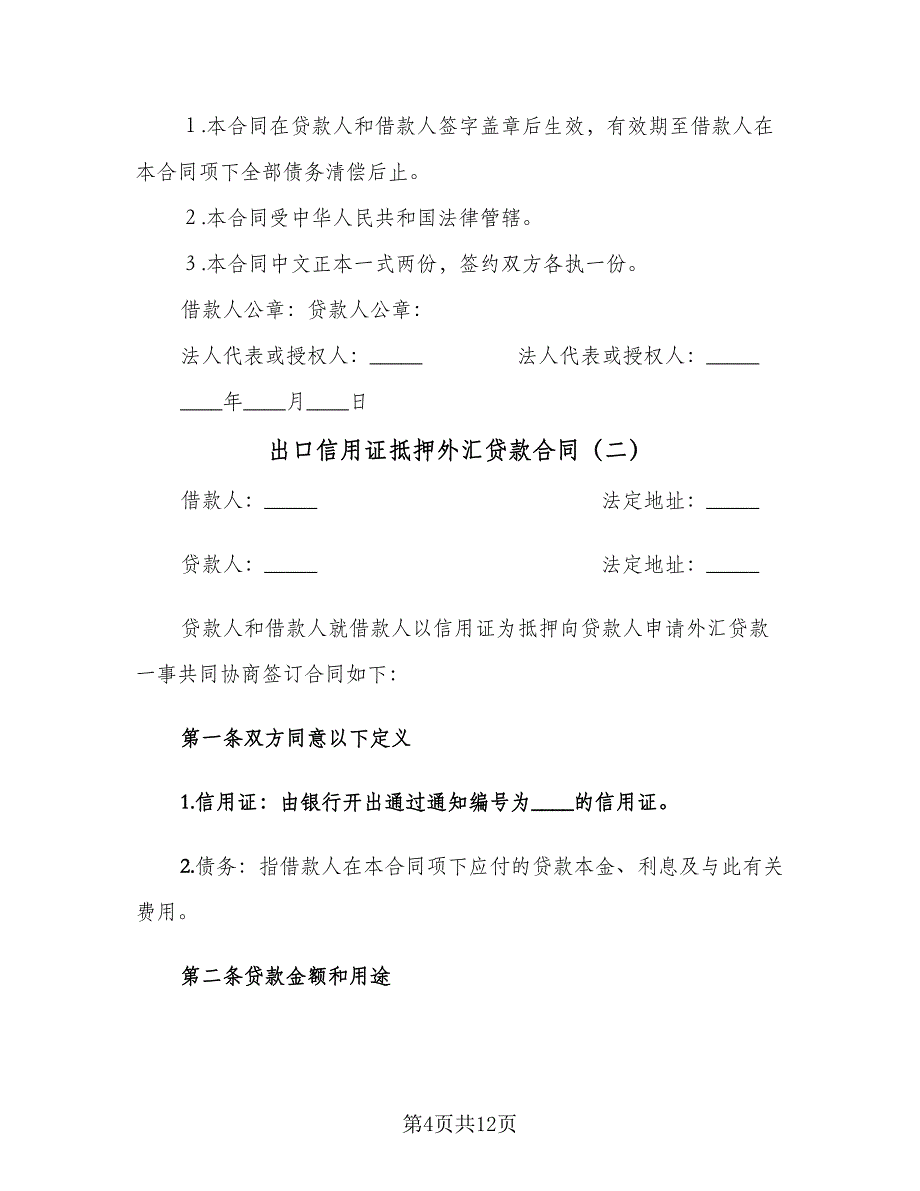 1.本合同在贷款人和借款人签字盖章后生效，有效期至借款人在
本合同项下全部债务清偿后止。
2.本合同受中华人民共和国法律管辖。
3.本合同中文正本一式两份，签约双方各执一份。
借款人公章：贷款人公章：
法人代表或授权人：_____ 法人代表或授权人：_____
____年____月____日
出口信用证抵押外汇贷款合同（二）
借款人：_____ 法定地址：_____
贷款人：_____ 法定地址：_____
贷款人和借款人就借款人以信用证为抵押向贷款人申请外汇贷款
一事共同协商签订合同如下：
第一条双方同意以下定义
1.信用证：由银行开出通过通知编号为____的信用证。
2.债务：指借款人在本合同项下应付的贷款本金、利息及与此有关
费用。
第二条贷款金额和用途
第4页共12页